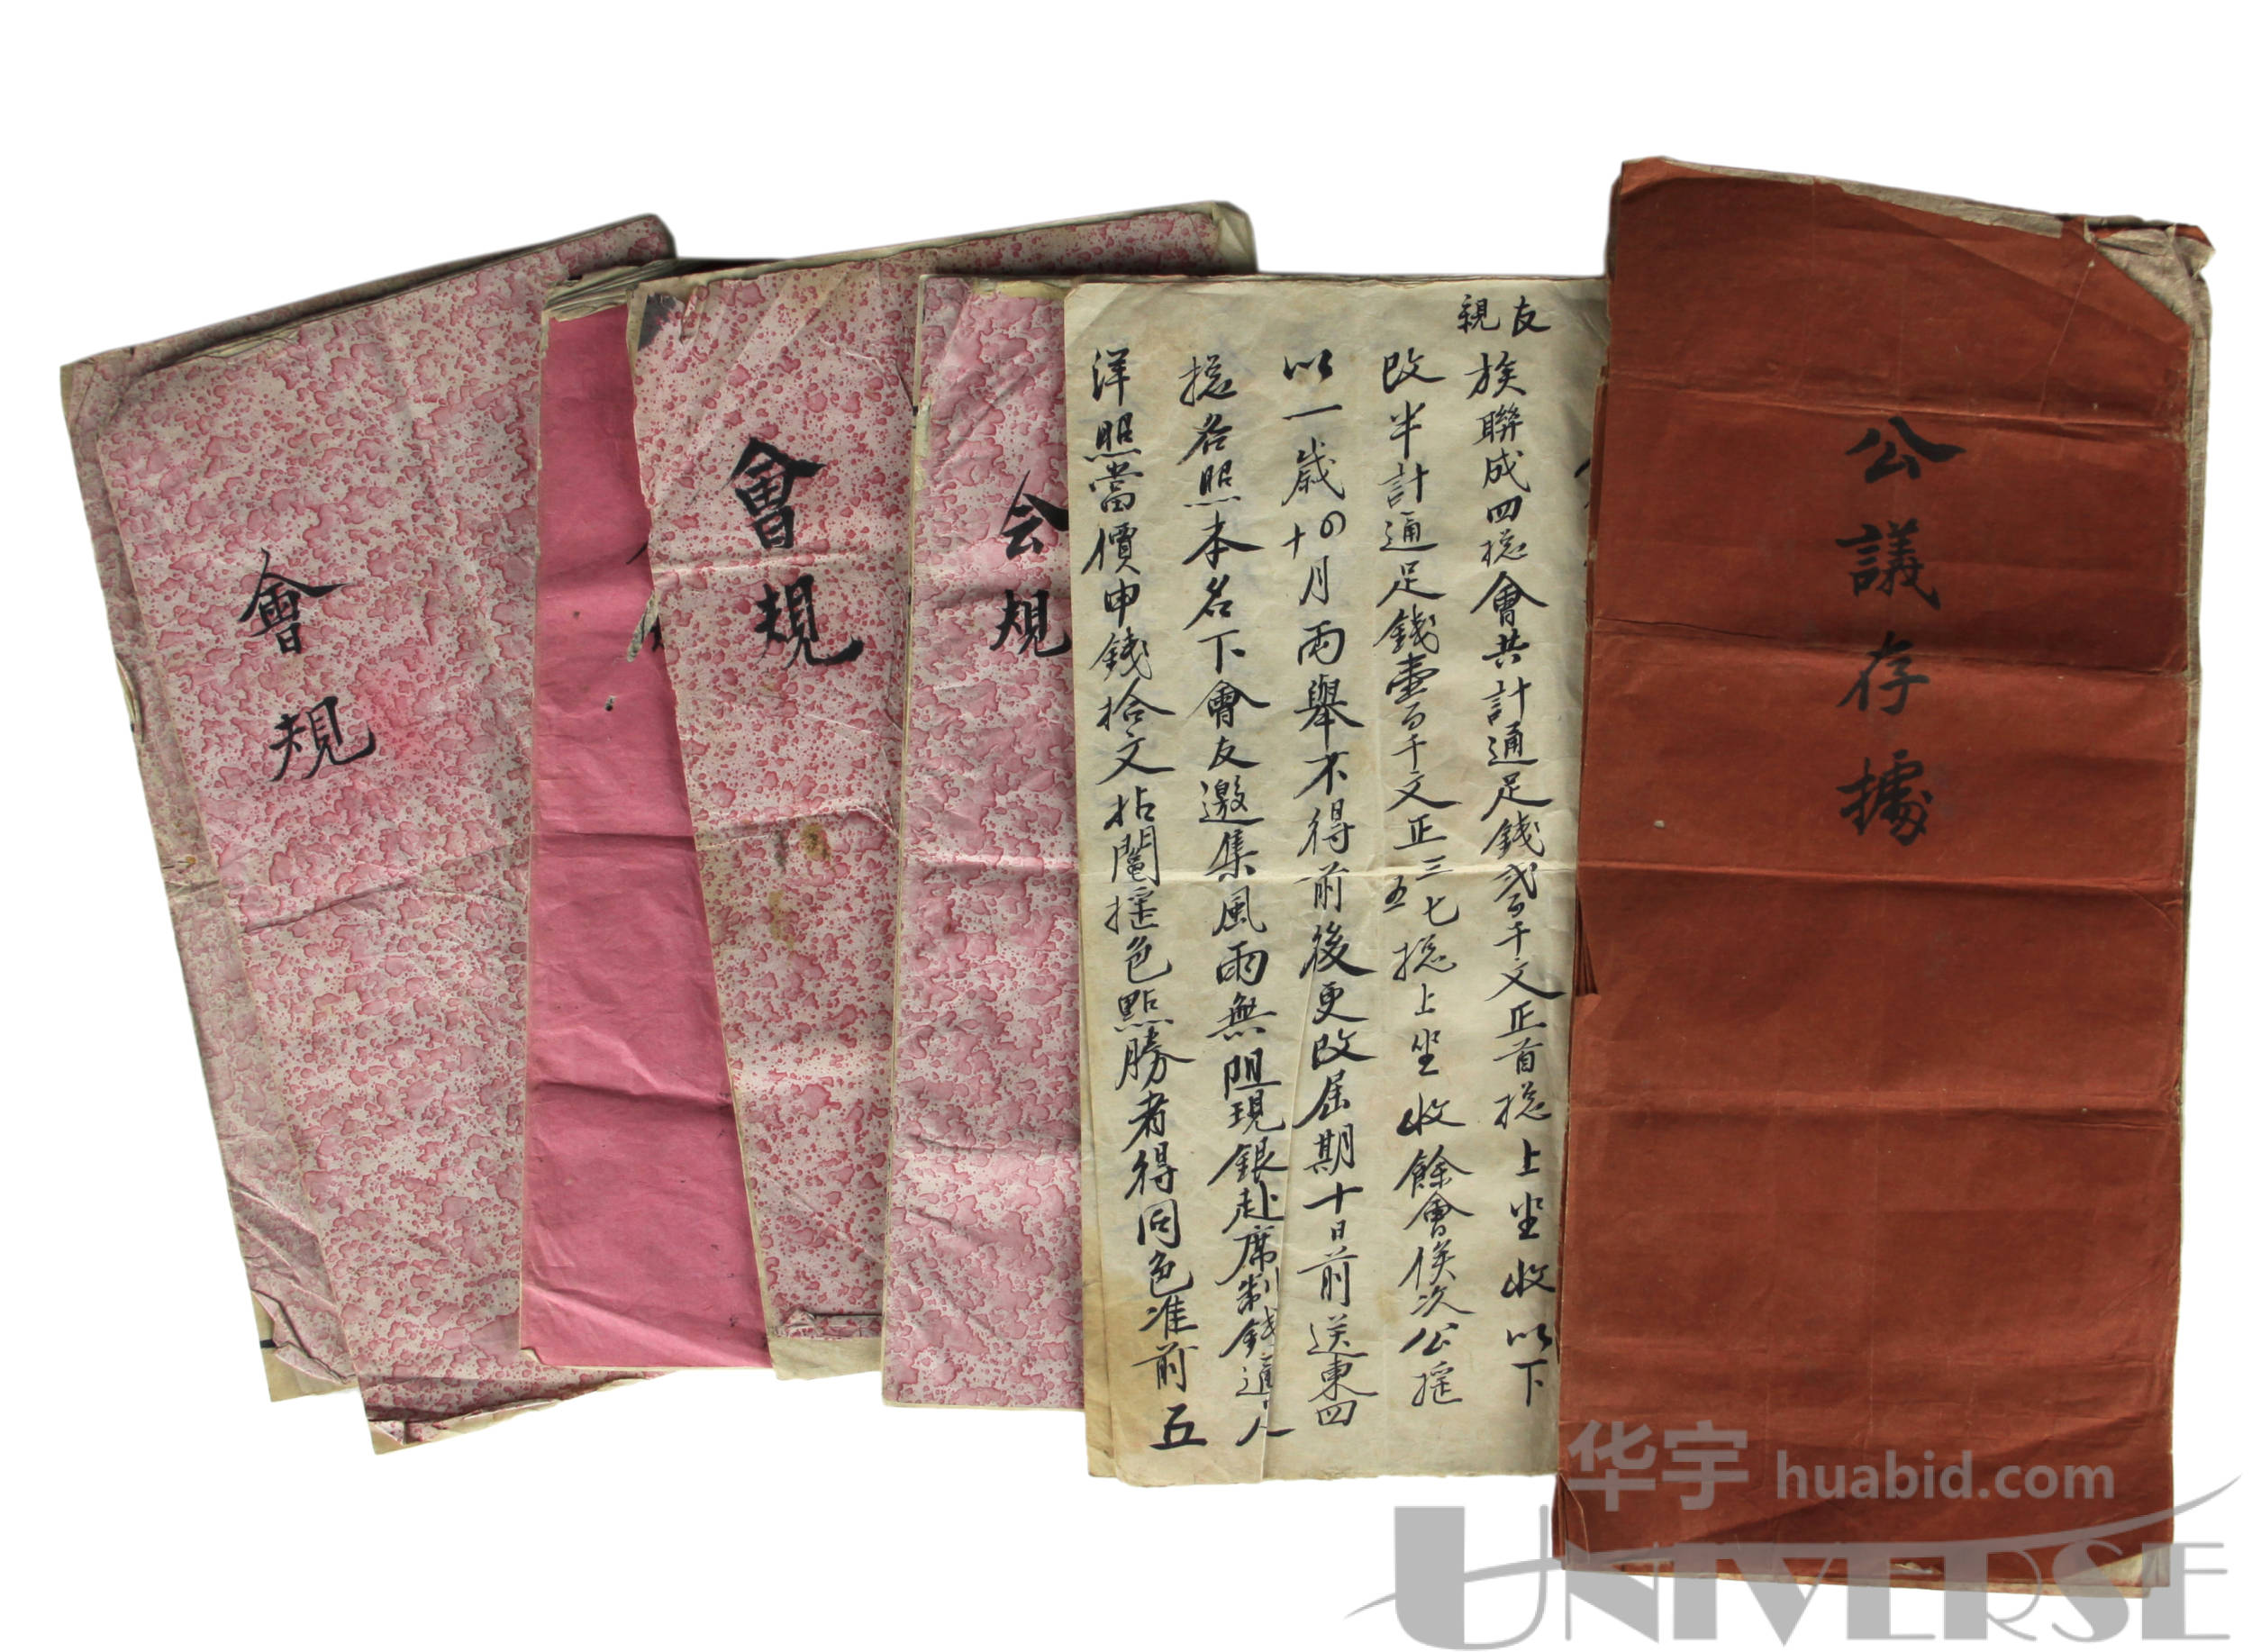 公議存據
親友
族聯成四摠會共計通足錢貳百千文正首摠上坐收以下
改半計通足錢壹百千文正三五七摠上坐收餘會俟次公搖
以一歲四十月兩舉不得前後更改屆期十日前送柬四
摠各照本名下會友邀集風雨無阻現銀赴席制錢通人
洋照當價申錢拾文拈鬮搖色點勝者得同色准前五
会規
會規
會規
华宇 huabid.com
UNIVERSE